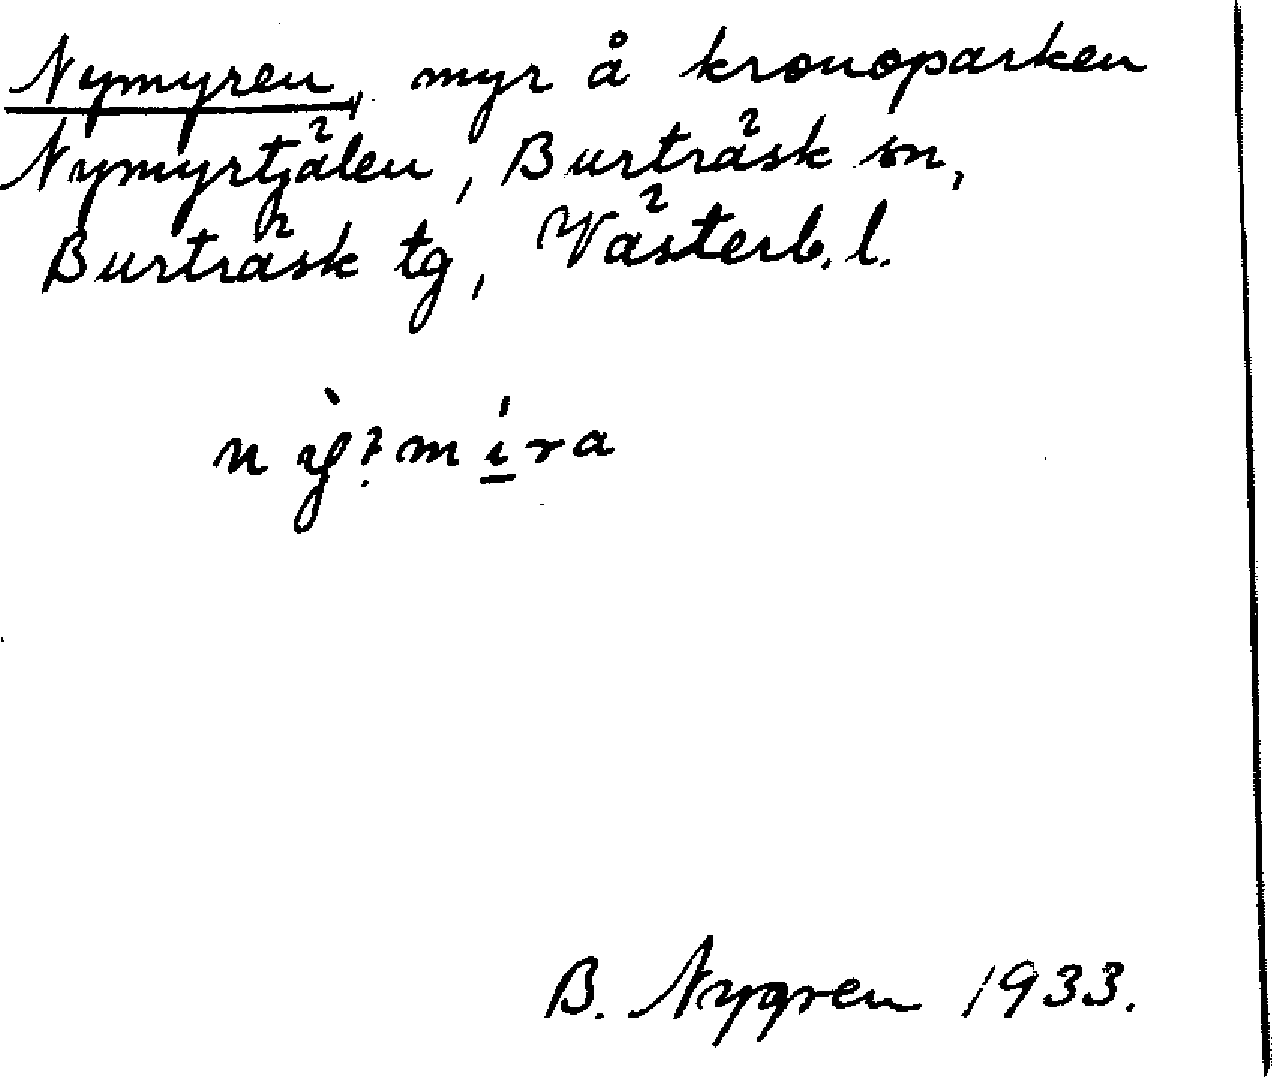 Nymyren, myr å kronoparken
Nymyrtjälen, Burträsk sn,
Burträsk tg, Västerb. l.
B. Nygren 1933.